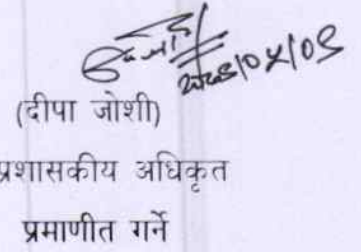 (दीपा जोशी)
प्रशासकीय अधिकृत
प्रमाणीत गर्ने